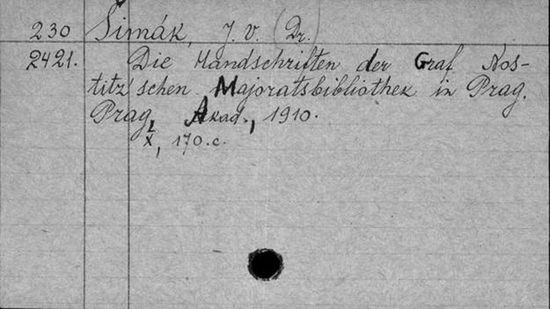 230 Šimák, J. V. (Dr.)
2421. Die Handschriften der Graf Nos-
titz'schen Majoratsbibliothek in Prag.
Prag, Akad., 1910.
X, 170.c.